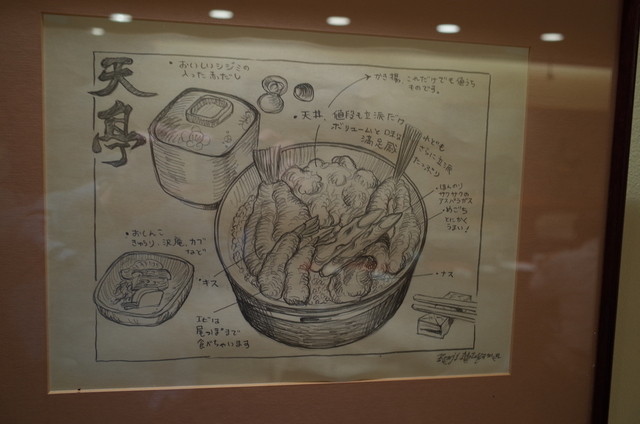 天亭
・おいしいシジミの
入った赤だし
かき揚、これだけでも値うち
ものです。
・天丼、値段も立派だけど
ボリュームと味は
満足感
たっぷり
・ほんのり
サクサクの
アスパラガス
・めごち
とにかく
うまい!
・おしんこ
きゅうり、沢庵、カブ
など
・キス
・ナス
エビは
尾っぽまで
食べちゃいます